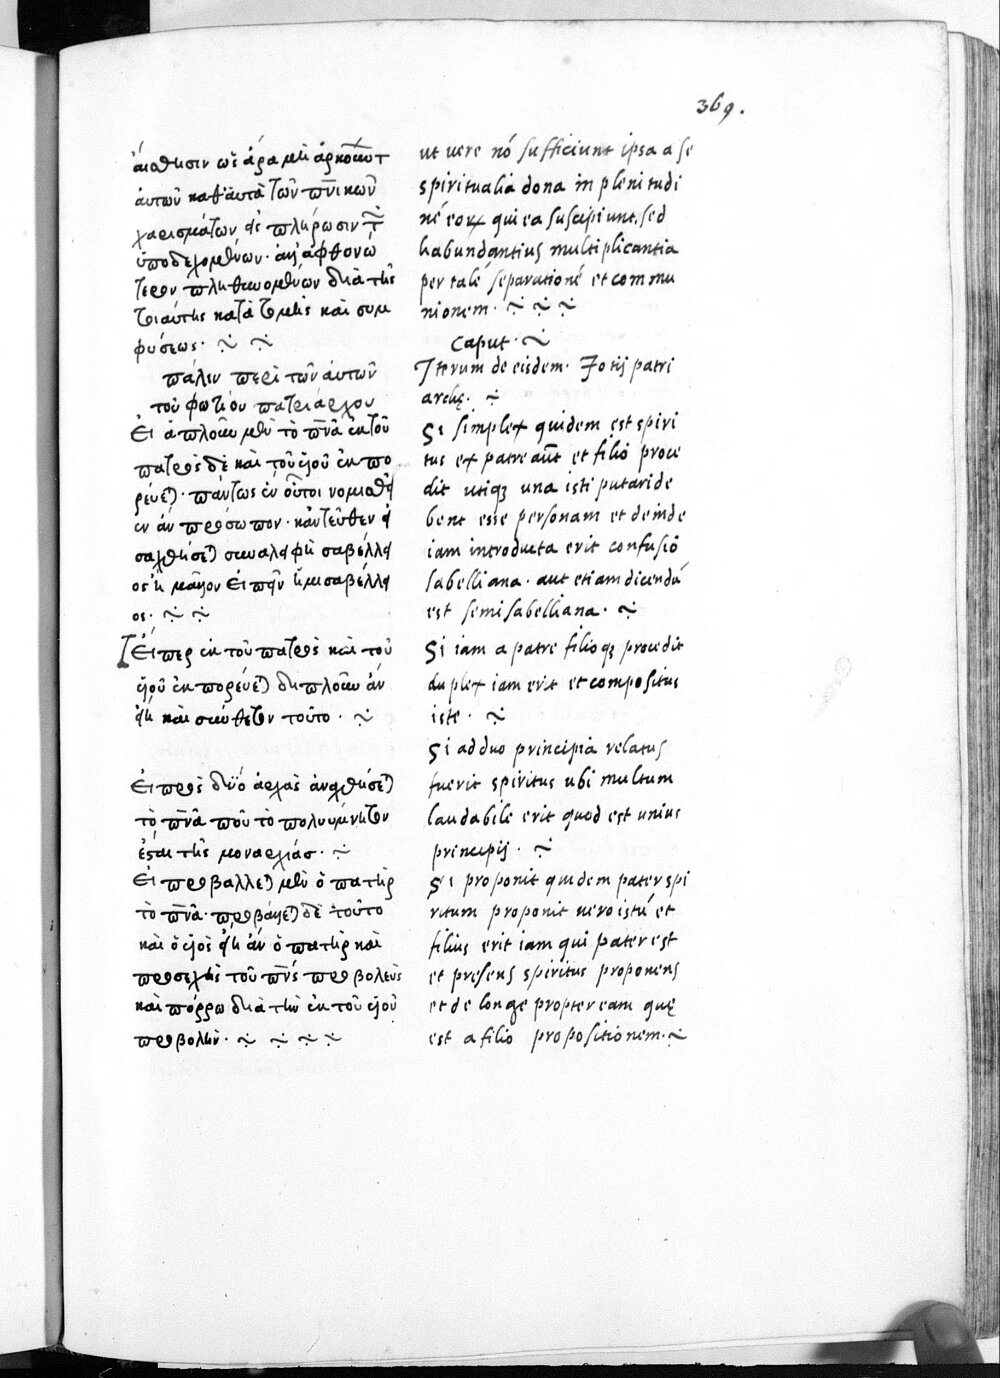 369.
αἰσθησιν ὡς ἄρα μὴ ἀρκούντ
αὐτῶν καθ αυτὰ τῶν πνικῶν
χαρισμάτων εἰς πλήρωσιν τ
ὑποδεχομένων· ἀλλ ἀφθονώ
τερον πληθυνομένων διὰ τῆς
τοιαύτης κατὰ τομῆς καὶ συμ
φύσεως·
πάλιν περὶ τῶν αὐτῶν
τοῦ φωτίου πατριάρχου
Εἰ ἁπλοῦν μὲν τὸ πνᾶ ἐκ τοῦ
πατρὸς δὲ καὶ τοῦ υἱοῦ ἐκ πο
ρεύε)· πάντως ἓν οὗτοι νομισθεῖ
ἐν ἂν πρόσωπον· κἀντεῦθεν εἰ
σαχθήσε) συναλοιφὴ σαβέλλι
ος ἢ μᾶλλον εἰπεῖν ἡμισαβέλλι
ος·
Εἴπερ ἐκ τοῦ πατρὸς καὶ τοῦ
υἱοῦ ἐκ πορεύε) διπλοῦν ἂν
εἴη καὶ σύνθετον τοῦτο·
Εἰ πρὸς δύο ἀρχὰς ἀναχθήσε)
τὸ πνᾶ ποῦ τὸ πολυύμνητον
ἔσται τῆς μοναρχίας·
Εἰ προβάλλε) μὲν ὁ πατὴρ
τὸ πνᾶ· προβάλλε) δὲ τοῦτο
καὶ ὁ υἱὸς εἴη ἂν ὁ πατὴρ καὶ
προσεχὴς τοῦ πνς προβολεὺς
καὶ πόρρω διὰ τὴν ἐκ τοῦ υἱοῦ
προβολήν·
ut uere nō sufficiunt ipsa a se
spiritualia dona in plenitudi
nē eoꝝ qui ea suscipiunt, sed
habundantius multiplicantia
per talē separationē et commu
nionem.
Caput.
Iterum de eisdem. Fotij patri
archę.
Si simplex quidem est spiri
tus ex patre aūt et filio proce
dit utiqꝫ una isti putari de
bent esse personam et deinde
iam introducta erit confusiō
sabelliana. aut etiam dicendū
est semisabelliana.
Si iam a patre filioqꝫ procedit
duplex iam erit et compositus
iste.
Si ad duo principia relatus
fuerit spiritus ubi multum
laudabile erit quod est unius
principij.
Si proponit quidem pater spi
ritum proponit uero istū et
filius erit iam qui pater est
et presens spiritus proponens
et de longe propter eam quę
est a filio propositionem.